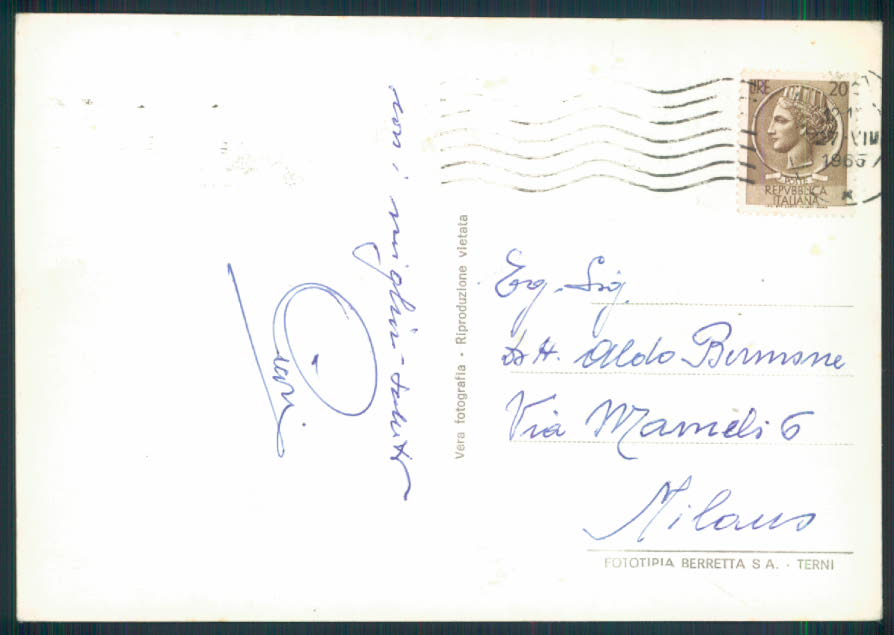 con i migliori saluti
Vera fotografia - Riproduzione vietata
LIRE 20
27 VIII
1965
POSTE
REPVBBLICA
ITALIANA
Eg. Sig.
Dott. Aldo
Via Mameli 6
Milano
FOTOTIPIA BERRETTA S A. - TERNI